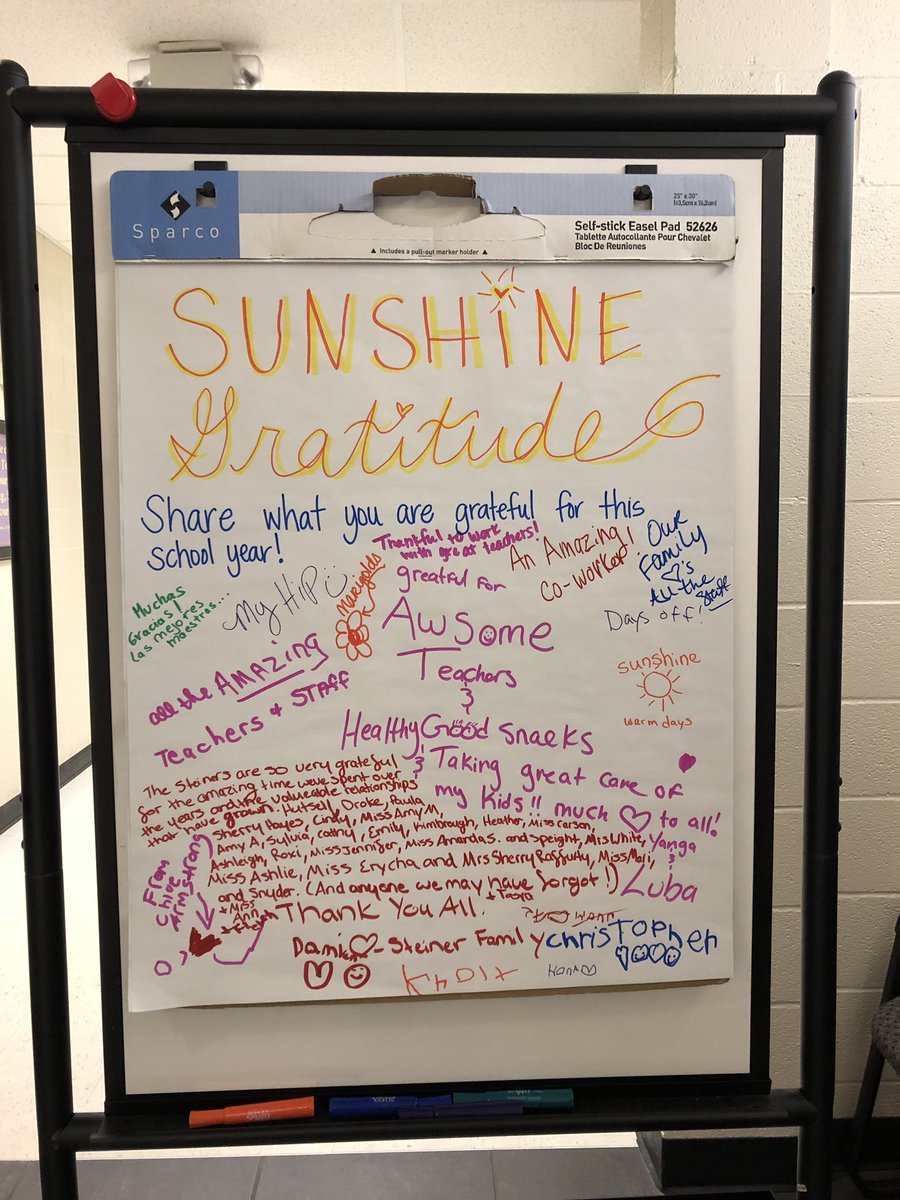 Sparco
25" x 30"
(63,5cm x 76,2cm)
▲ Includes a pull-out marker holder ▲
Self-stick Easel Pad 52626
Tablette Autocollante Pour Chevalet
Bloc De Reuniones
SUNSHINE
Gratitude
Share what you are grateful for this
school year!
Muchas
Gracias!
las mejores
maestras...
My HIP
Marigolds
Thankful to work
with great teachers!
greatful for
Awsome
Teachers
&
Healthy Good snacks
&
Taking great care of
my Kids!! much ♡ to all!
Yanga
&
Luba
An Amazing
co-worker!
Our
Family
is
All the
Staff
Days off!
sunshine
warm days
all the AMAZING
Teachers & STAFF
The Steiners are so very grateful
for the amazing time weve spent over
the years and the valueable relationships
that have grown. Hutsell, Drake, Paula,
Sherry Hayes, Cindy, Miss Amy M,
Amy A, Sylvia, Cathy, Emily, Kimbrough, Heather, Miss Carson,
Ashleigh, Roxi, Miss Jennifer, Miss Amanda S. and Speight, Mrs White,
Miss Ashlie, Miss Erycha and Mrs Sherry Rafferty, Miss Mari,
and Snyder. (And anyone we may have forgot!)
+ Miss
Ann
+ Tasya
Thank You All.
Dami♡-Steiner Family
From
Chloe
Armstrong
Christopher